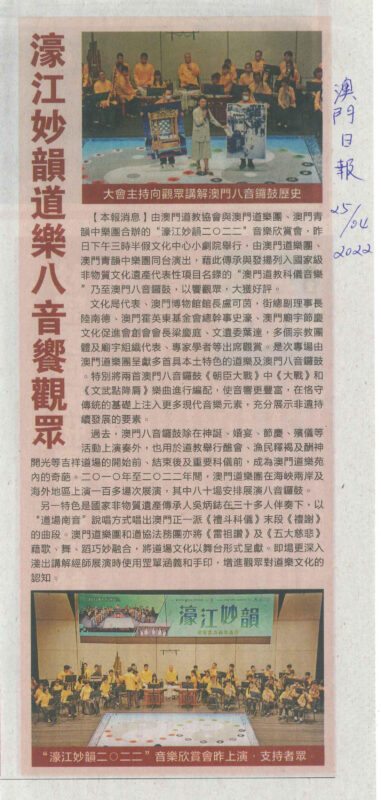 濠江妙韻道樂八音饗觀眾
大會主持向觀眾講解澳門八音鑼鼓歷史
澳門日報
25/04
2022
【本報消息】由澳門道教協會與澳門道樂團、澳門青
韻中樂團合辦的“濠江妙韻二〇二二”音樂欣賞會，昨
日下午三時半假文化中心小劇院舉行，由澳門道樂團、
澳門青韻中樂團同台演出，藉此傳承與發揚列入國家級
非物質文化遺產代表性項目名錄的“澳門道教科儀音樂
”乃至澳門八音鑼鼓，以饗觀眾，大獲好評。
文化局代表、澳門博物館館長盧可茵，街總副理事長
陸南德、澳門霍英東基金會總幹事史濠、澳門廟宇節慶
文化促進會創會會長梁慶庭、文遺委葉達，多個宗教團
體及廟宇組織代表、專家學者等出席觀賞。是次專場由
澳門道樂團呈獻多首具本土特色的道樂及澳門八音鑼鼓
。特別將兩首澳門八音鑼鼓《朝臣大戰》中《大戰》和
《文武點降脣》樂曲進行編配，使音響更豐富，在恪守
傳統的基礎上注入更多現代音樂元素，充分展示非遺持
續發展的要素。
過去，澳門八音鑼鼓除在神誕、婚宴、節慶、殯儀等
活動上演奏外，也用於道教舉行醮會、漁民釋褐及酬神
開光等吉祥道場的開始前、結束後及重要科儀前，成為澳門道樂苑
內的奇葩。二〇一〇年至二〇二二年間，澳門道樂團在海峽兩岸及
海外地區上演一百多場次展演，其中八十場安排展演八音鑼鼓。
另一特色是國家非物質遺產傳承人吳炳鋕在三十多人伴奏下，以
“道場南音”說唱方式唱出澳門正一派《禮斗科儀》末段《禮謝》
的曲段。澳門道樂團和道協法務團亦將《雷祖讚》及《五大慈悲》
藉歌、舞、蹈巧妙融合，將道場文化以舞台形式呈獻。即場更深入
淺出講解經師展演時使用罡單涵義和手印，增進觀眾對道樂文化的
認知。
濠江妙韻
“濠江妙韻二〇二二”音樂欣賞會昨上演，支持者眾